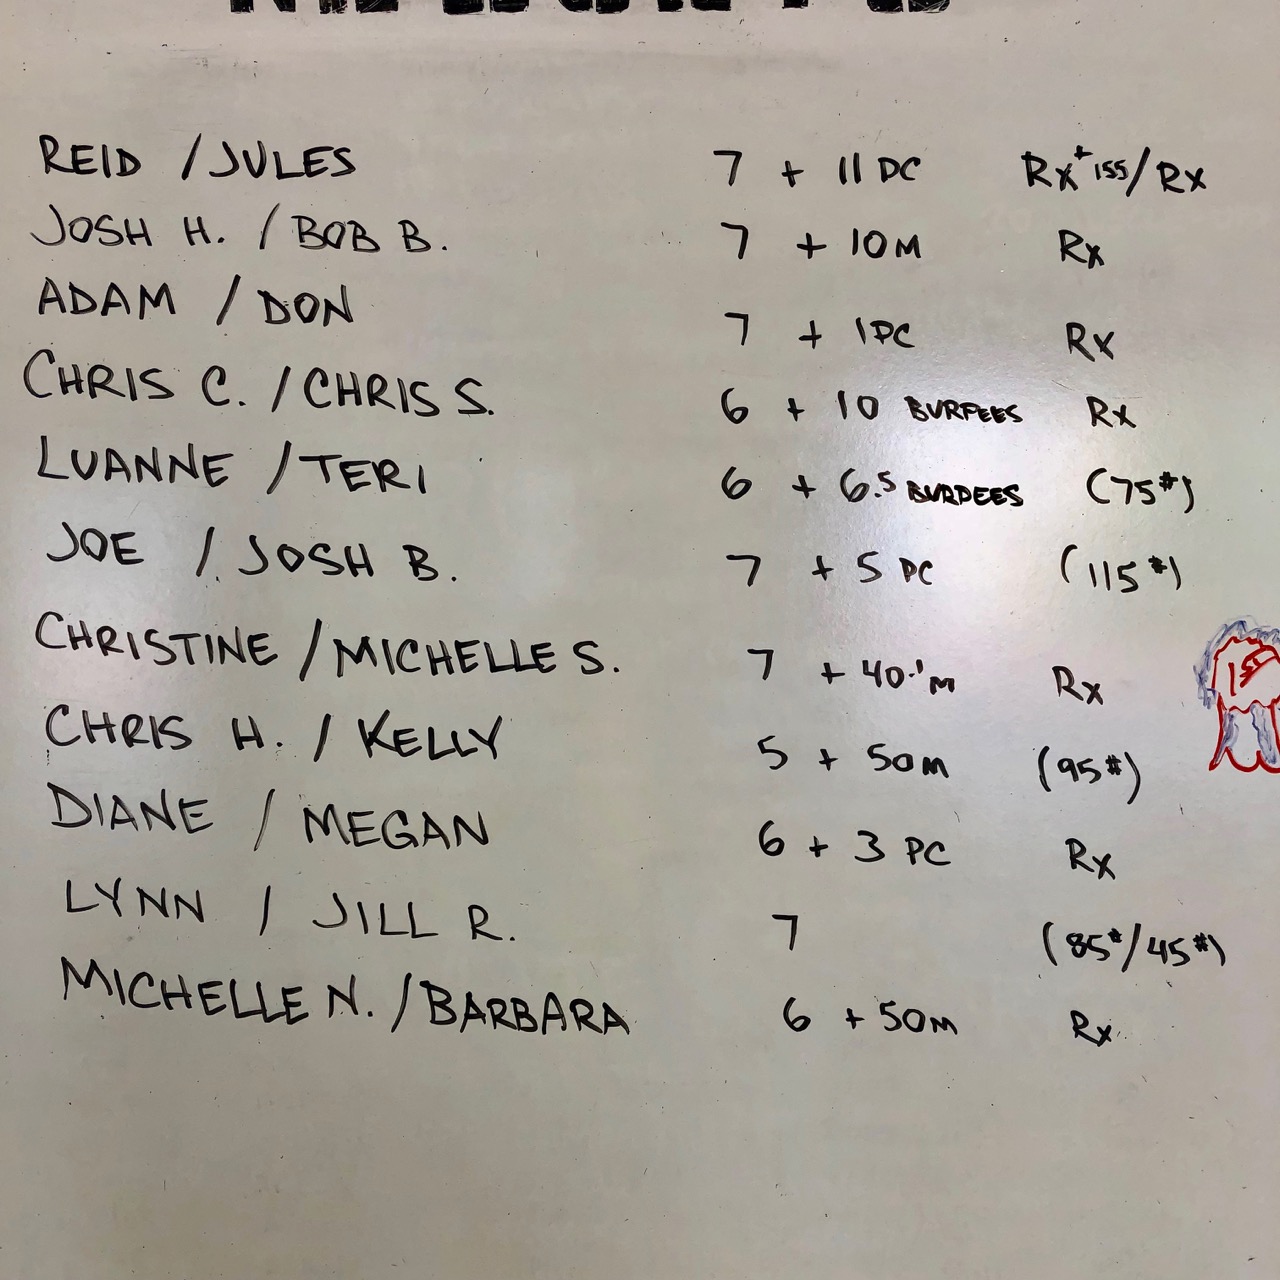 REID / JULES 7 + 11 PC Rx+ 155 / Rx
JOSH H. / BOB B. 7 + 10M Rx
ADAM / DON 7 + 1PC Rx
CHRIS C. / CHRIS S. 6 + 10 BURPEES Rx
LUANNE / TERI 6 + 6.5 BURPEES (75#)
JOE / JOSH B. 7 + 5 PC (115#)
CHRISTINE / MICHELLE S. 7 + 40.1M Rx
CHRIS H. / KELLY 5 + 50M (95#)
DIANE / MEGAN 6 + 3 PC Rx
LYNN / JILL R. 7 (85#/45#)
MICHELLE N. / BARBARA 6 + 50M Rx